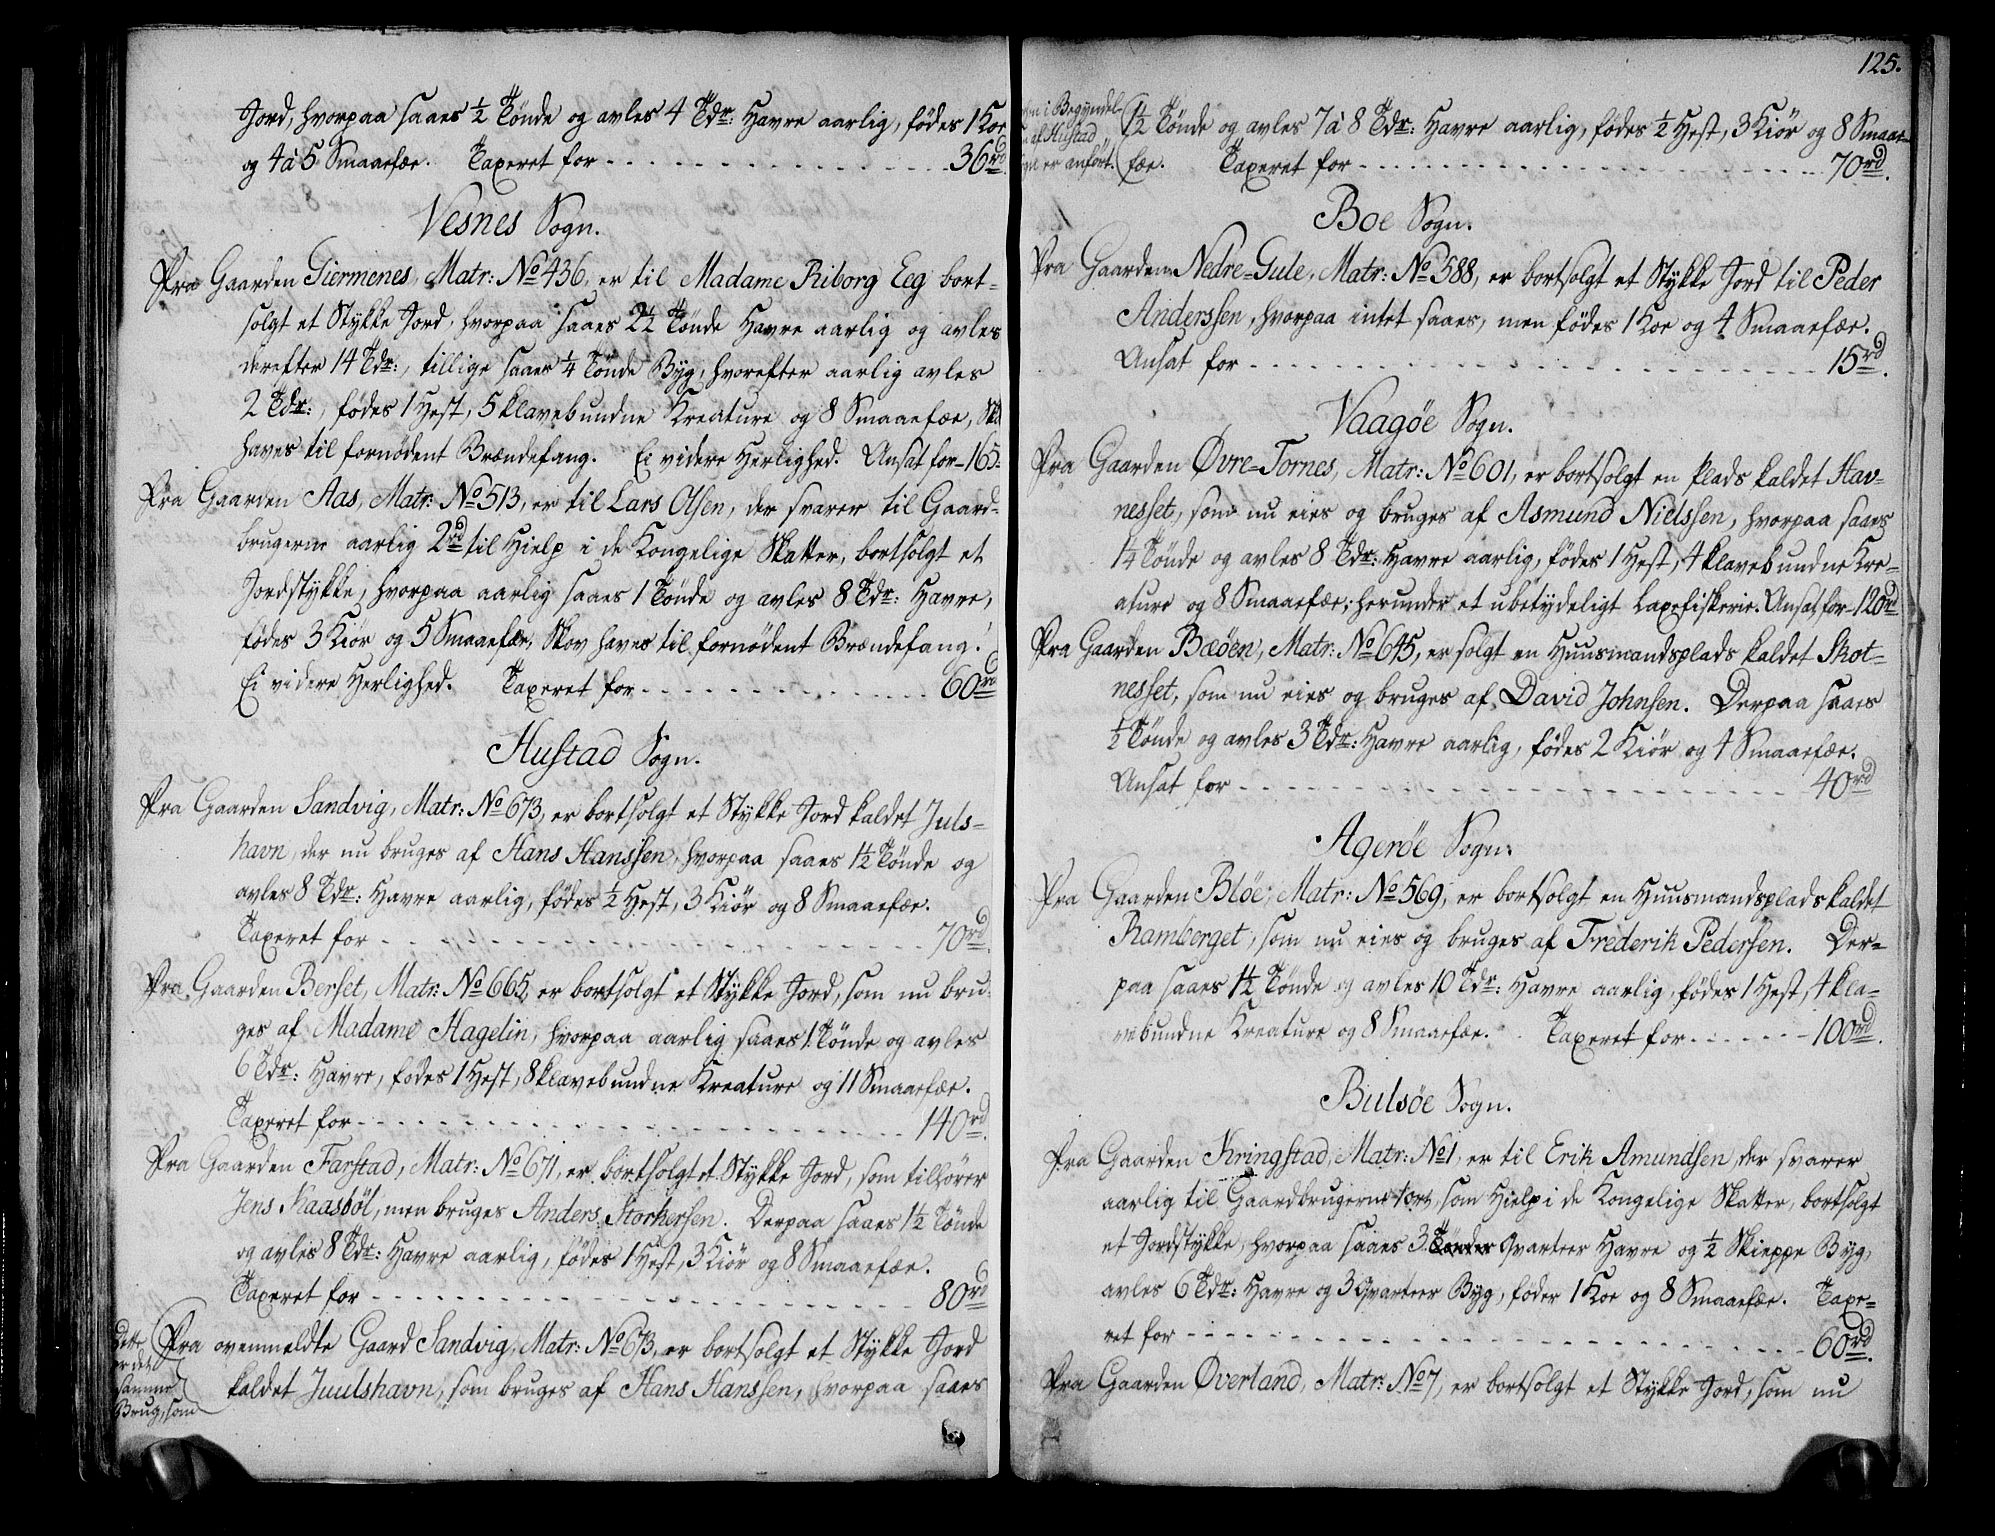 Jord, hvorpaa saaes ½ Tönde og avles 4 Tdr: Havre aarlig, fødes 1 Koe
og 4 à 5 Smaaefæe. Taxeret for - - - 36rd.
Vesnes Sogn.
Fra Gaarden Giermenes, Matr: No 436, er til Madame Riborg Eeg bort-
solgt et Stykke Jord, hvorpaa saaes 2½ Tönde Havre aarlig og avles
derefter 14 Tdr:, tillige saaes ¼ Tönde Byg, hvorefter aarlig avles
2 Tdr:, fødes 1 Hest, 5 klavebundne Kreature og 8 Smaaefæe,
haves til fornødent Brændefang. Ei videre Herlighed. Ansat for - 165
Fra Gaarden Aas, Matr: No 513, er til Lars Olsen, der svarer til Gaard-
brugerne aarlig 2rd til Hielp i de Kongelige Skatter, bortsolgt et
Jordstykke, hvorpaa aarlig saaes 1 Tönde og avles 8 Tdr: Havre,
fødes 3 Kiör og 5 Smaaefæe, Skov haves til fornødent Brændefang.
Ei videre Herlighed. Taxeret for - - - 60rd
Hustad Sogn.
Fra Gaarden Sandvig, Matr: No 673, er bortsolgt et Stykke Jord kaldet Juls-
havn, der nu bruges af Hans Hanssen, hvorpaa saaes 1½ Tönde og
avles 8 Tdr: Havre aarlig, fødes ½ Hest, 3 Kiör og 8 Smaaefæe.
Taxeret for - - - 70rd.
Fra Gaarden Berset, Matr: No 665, er bortsolgt et Stykke Jord, som nu bru-
ges af Madame Hagelin, hvorpaa aarlig saaes 1 Tönde og avles
6 Tdr: Havre, fødes 1 Hest, 8 klavebundne Kreature og 11 Smaaefæe.
Taxeret for - - - 140rd.
Fra Gaarden Farstad, Matr: No 671, er bortsolgt et Stykke Jord, som tilhörer
Jens Kaasböl, men bruges Anders Storkersen. Derpaa saaes 1½ Tönde
og avles 8 Tdr: Havre aarlig, fødes 1 Hest, 3 Kiör og 8 Smaaefæe.
Taxeret for - - - 80rd
Fra ovenmeldte Gaard Sandvig, Matr: No 673, er bortsolgt et Stykke Jord
kaldet Juulshavn, som bruges af Hans Hanssen, hvorpaa saaes
Dette
er det
samme
Brug, som
125.
i Begyndel-
af Hustad
er anfört.
1½ Tönde og avles 7 à 8 Tdr: Havre aarlig, fødes ½ Hest, 3 Kiör og 8 Smaae-
fæe. Taxeret for - - - 70rd.
Boe Sogn.
Fra Gaarden Nedre-Gule, Matr: No 588, er bortsolgt et Stykke Jord til Peder
Anderssen, hvorpaa intet saaes, men fødes 1 Koe og 4 Smaaefæe.
Ansat for - - - 15rd.
Vaagöe Sogn.
Fra Gaarden Øvre-Tornes, Matr: No 601, er bortsolgt en Plads kaldet Hav-
nesset, som nu eies og bruges af Asmund Nielssen, hvorpaa saaes
1¼ Tönde og avles 8 Tdr: Havre aarlig, fødes 1 Hest, 4 klavebundne Kre-
ature og 8 Smaaefæe; herunder et ubetydeligt Laxefiskerie. Ansat for - 120rd
Fra Gaarden Bæöen, Matr: No 645, er solgt en Huusmandsplads kaldet Skot-
nesset, som nu eies og bruges af David Johnsen. Derpaa saaes
½ Tönde og avles 3 Tdr: Havre aarlig, fødes 2 Kiör og 4 Smaaefæe.
Ansat for - - - 40rd
Ageröe Sogn.
Fra Gaarden Blöe, Matr: No 569, er bortsolgt en Huusmandsplads kaldet
Ramberget, som nu eies og bruges af Frederik Pedersen. Der-
paa saaes 1½ Tönde og avles 10 Tdr: Havre aarlig, fødes 1 Hest, 4 kla-
vebundne Kreature og 8 Smaaefæe. Taxeret for - - - 100rd.
Bulsöe Sogn.
Fra Gaarden Kringstad, Matr: No 1, er til Erik Amundsen, der svarer
aarlig til Gaardbrugerne 1ort, som Hielp i de Kongelige Skatter, bortsolgt
et Jordstykke, hvorpaa saaes 3 Tönder Qvarteer Havre og ½ Skieppe Byg,
avles 6 Tdr: Havre og 3 Qvarteer Byg, föder 1 Koe og 8 Smaaefæe. Taxe-
ret for - - - 60rd.
Fra Gaarden Överland, Matr: No 7, er bortsolgt et Stykke Jord, som nu